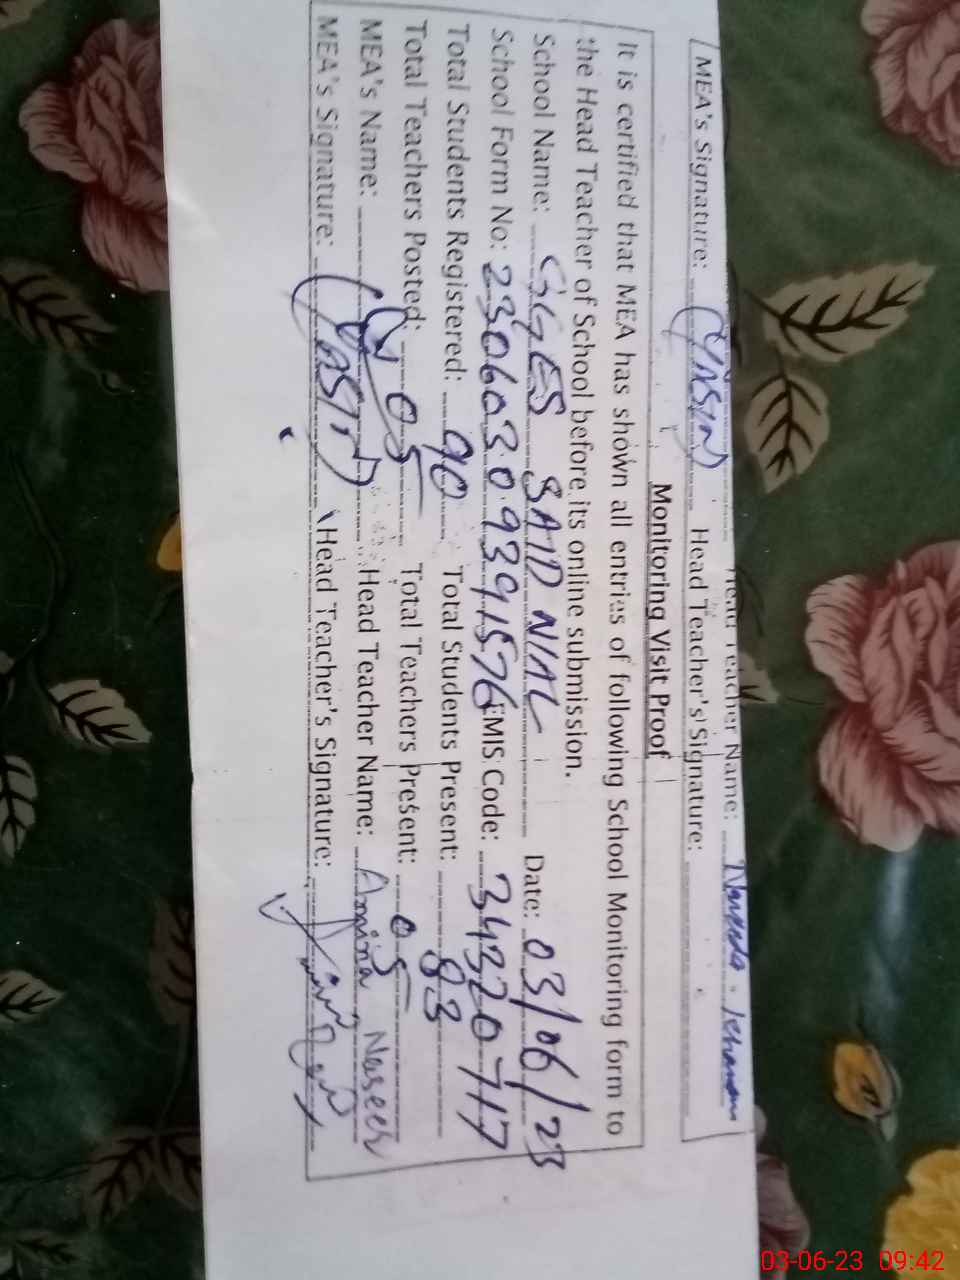 Head Teacher Name:
MEA's Signature: (YASIN) Head Teacher's Signature:
Monitoring Visit Proof
It is certified that MEA has shown all entries of following School Monitoring form to
the Head Teacher of School before its online submission.
School Name: GGES SAID NIAL Date: 03/06/23
School Form No: 23060309391576 EMIS Code: 34320717
Total Students Registered: 90 Total Students Present: 83
Total Teachers Posted: 05 Total Teachers Present: 05
MEA's Name: Head Teacher Name: Amina Naseer
MEA's Signature: Head Teacher's Signature:
03-06-23 09:42